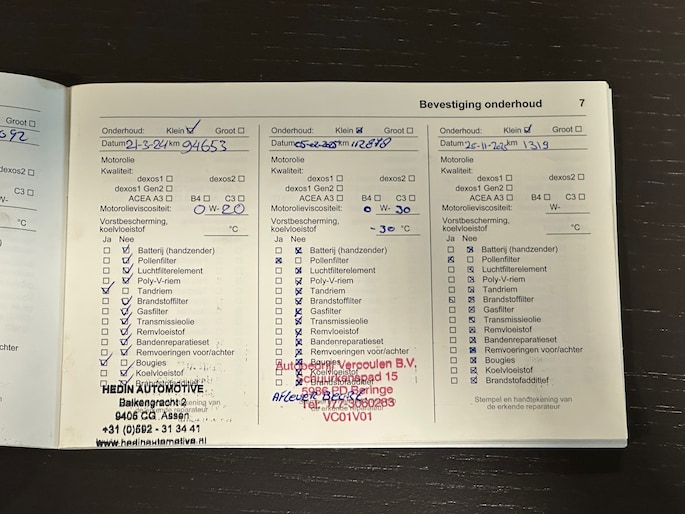 Bevestiging onderhoud 7
Groot
692
dexos2
C3
achter
Onderhoud: Klein Groot
Datum 21-3-24 km 94653
Motorolie
Kwaliteit:
dexos1 dexos2
dexos1 Gen2
ACEA A3 B4 C3
Motorolieviscositeit: 0 W- 20
Vorstbescherming,
koelvloeistof °C
Ja Nee
Batterij (handzender)
Pollenfilter
Luchtfilterelement
Poly-V-riem
Tandriem
Brandstoffilter
Gasfilter
Transmissieolie
Remvloeistof
Bandenreparatieset
Remvoeringen voor/achter
Bougies
Koelvloeistof
Brandstofadditief
HEDIN AUTOMOTIVE
Balkengracht 2
9405 CG Assen
+31 (0)592 - 31 34 41
www.hedinautomotive.nl
Onderhoud: Klein Groot
Datum 05-02-2025 km 112878
Motorolie
Kwaliteit:
dexos1 dexos2
dexos1 Gen2
ACEA A3 B4 C3
Motorolieviscositeit: 0 W- 30
Vorstbescherming,
koelvloeistof -30 °C
Ja Nee
Batterij (handzender)
Pollenfilter
Luchtfilterelement
Poly-V-riem
Tandriem
Brandstoffilter
Gasfilter
Transmissieolie
Remvloeistof
Bandenreparatieset
Remvoeringen voor/achter
Bougies
Koelvloeistof
Brandstofadditief
Autobedrijf Verpoulen B.V.
Schuurkenspad 15
5986 PD Beringe
AFLEVER BEURT
Tel: 077-3060283
de erkende reparateur
VC01V01
Onderhoud: Klein Groot
Datum 25-11-2025 km 1319
Motorolie
Kwaliteit:
dexos1 dexos2
dexos1 Gen2
ACEA A3 B4 C3
Motorolieviscositeit: W-
Vorstbescherming,
koelvloeistof °C
Ja Nee
Batterij (handzender)
Pollenfilter
Luchtfilterelement
Poly-V-riem
Tandriem
Brandstoffilter
Gasfilter
Transmissieolie
Remvloeistof
Bandenreparatieset
Remvoeringen voor/achter
Bougies
Koelvloeistof
Brandstofadditief
Stempel en handtekening van
de erkende reparateur